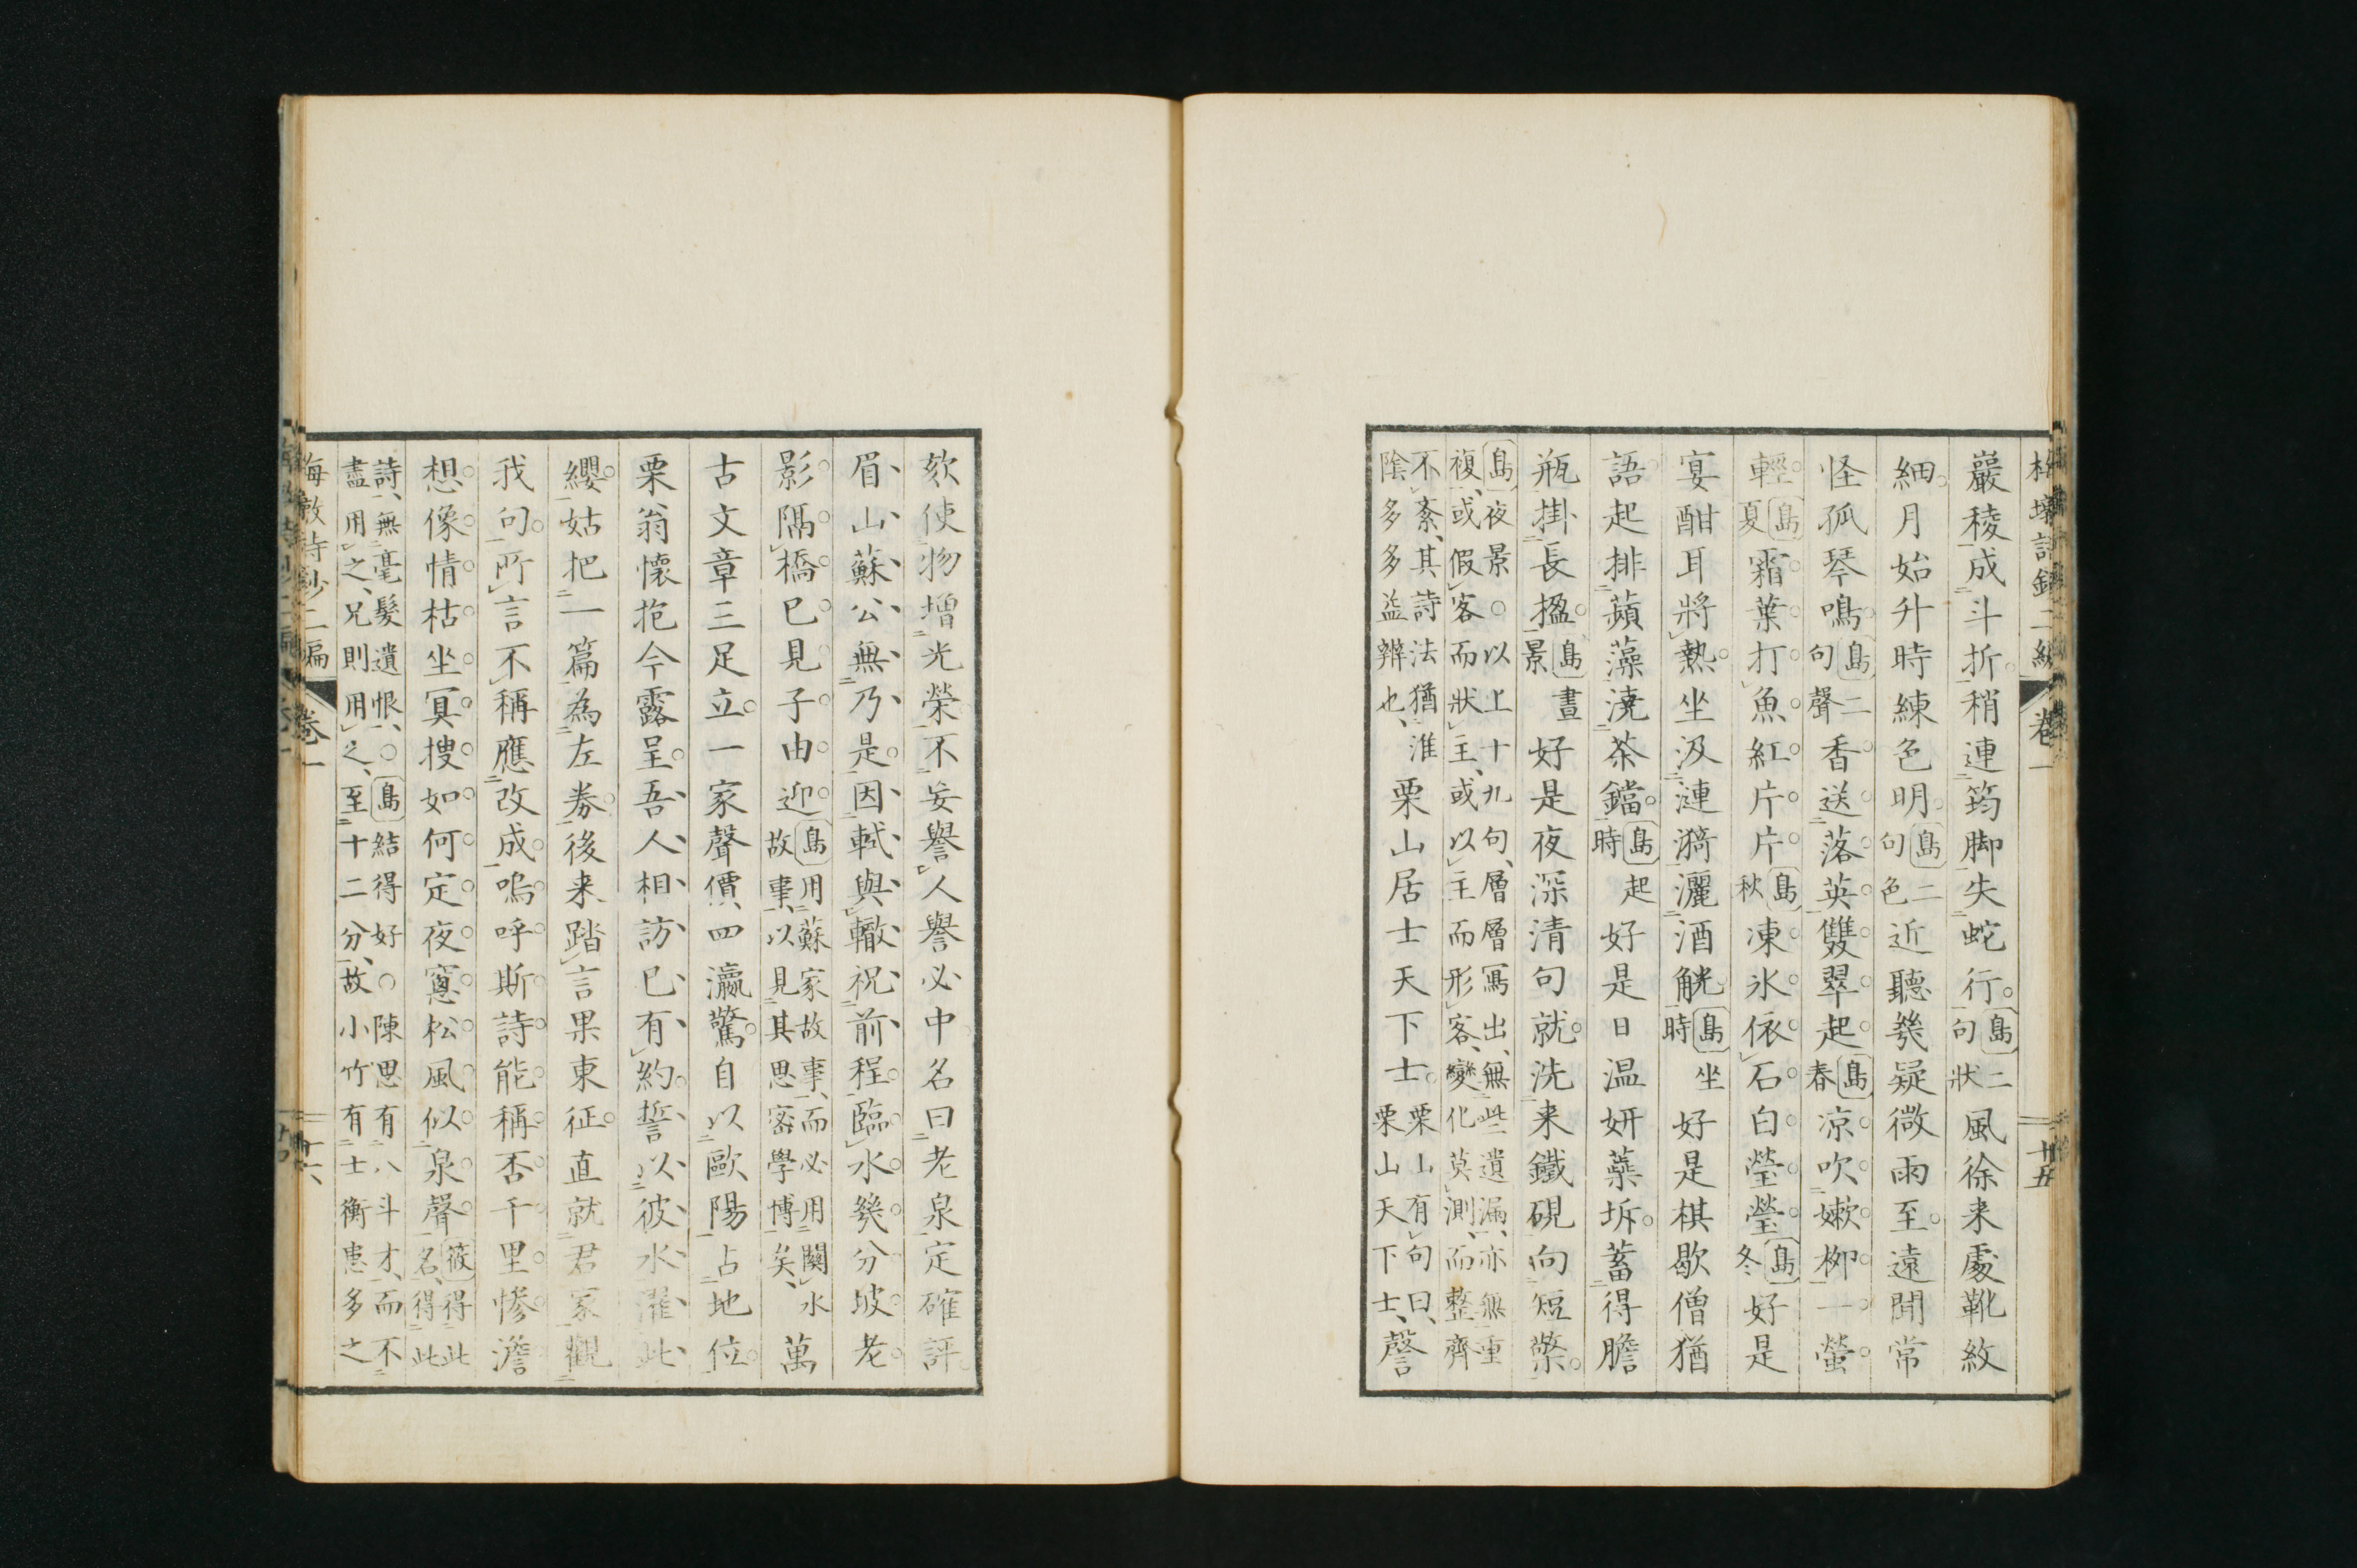 巖稜成斗折稍連筠脚失蛇行島二句狀風徐来處靴紋
細月始升時練色明島二句色近聽幾疑微雨至遠聞常
怪孤琴鳴島二句聲香送落英雙翠起島春凉吹嫰柳一螢
輕島夏霜葉打魚紅片片島秋凍氷依石白瑩瑩島冬好是
宴酣耳將熱坐汲漣漪灑酒觥島坐時好是棋歇僧猶
語起排蘋藻澆茶鐺島起時好是日温妍藥坼蓄得膽
瓶掛長楹島晝景好是夜深清句就洗来鐵硯向短檠
島夜景○以上十九句層層寫出無些遺漏亦無重
複或假客而狀主或以主而形客變化莫測而整齊
不紊其詩法猶淮
陰多多益辨也栗山居士天下士栗山有句曰
栗山天下士謦
欬使物增光榮不妄譽人譽必中名曰老泉定確評
眉山蘇公無乃是因軾與轍祝前程臨水幾分坡老
影隔橋已見子由迎島用蘇家故事而必用關水
故事以見其思密學博矣萬
古文章三足立一家聲價四瀛驚自以歐陽占地位
栗翁懷抱今露呈吾人相訪已有約誓以彼水濯此
纓姑把一篇為左券後来踏言果東征直就君家觀
我句所言不稱應改成嗚呼斯詩能稱否千里慘澹
想像情枯坐冥搜如何定夜窻松風似泉聲筱得此
名得此
詩無毫髮遺恨○島結得好○陳思有八斗才而不
盡用之兄則用之至十二分故小竹有士衡患多之
卷一
十五
二編
卷一
十六